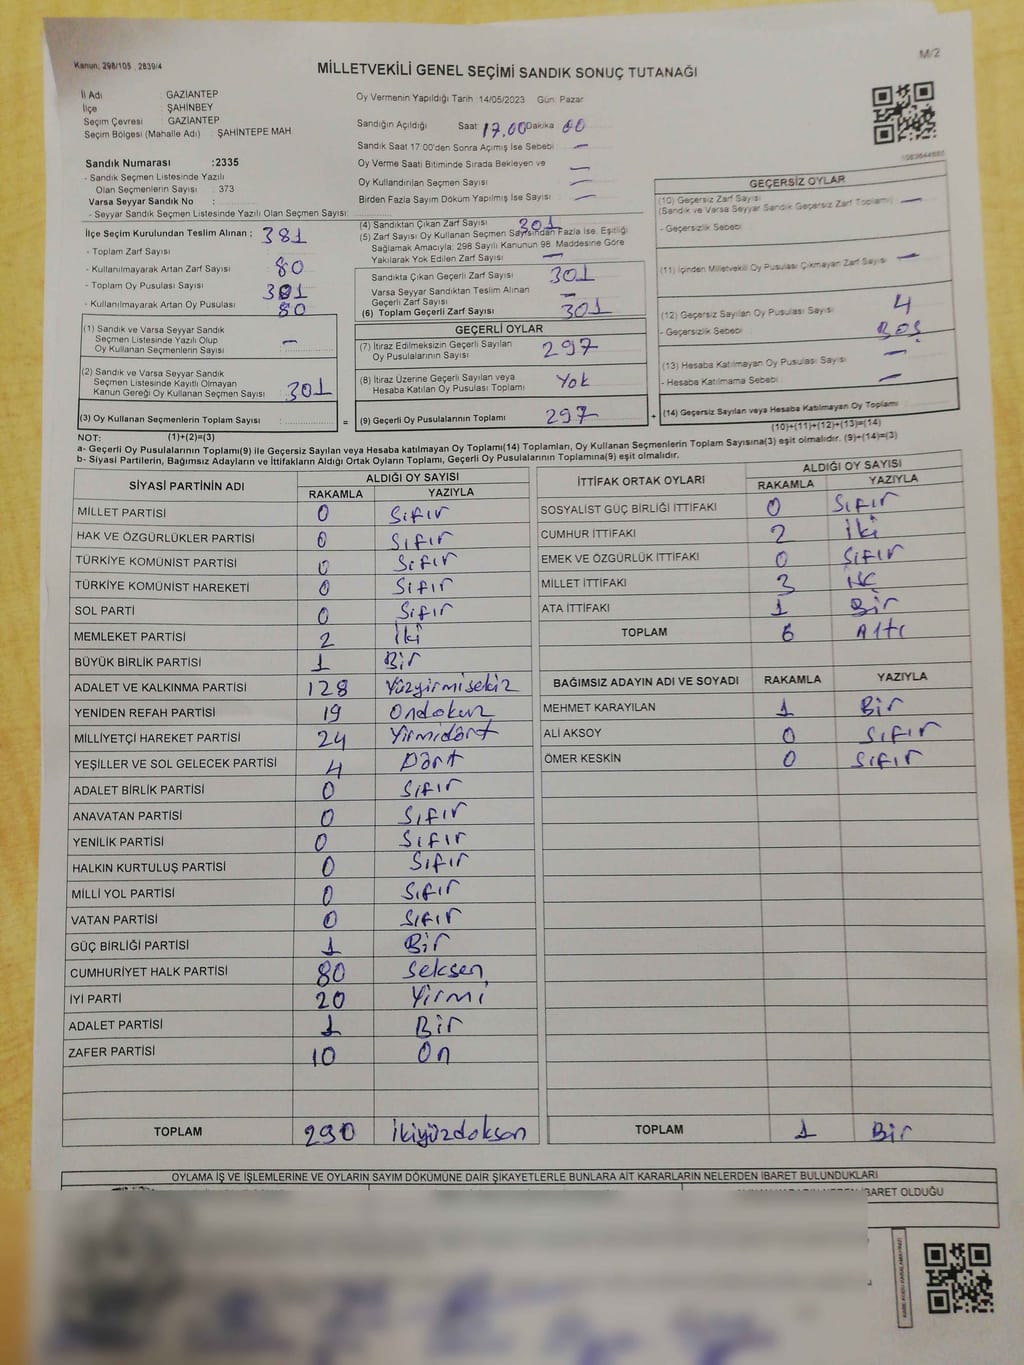 M/2
Kanun: 298/105 , 2839/4
MİLLETVEKİLİ GENEL SEÇİMİ SANDIK SONUÇ TUTANAĞI
İl Adı : GAZİANTEP
İlçe : ŞAHİNBEY
Seçim Çevresi : GAZİANTEP
Seçim Bölgesi (Mahalle Adı) : ŞAHİNTEPE MAH.
Sandık Numarası :2335
- Sandık Seçmen Listesinde Yazılı
Olan Seçmenlerin Sayısı : 373
Varsa Seyyar Sandık No :
- Seyyar Sandık Seçmen Listesinde Yazılı Olan Seçmen Sayısı:
Oy Vermenin Yapıldığı Tarih 14/05/2023 Gün: Pazar
Sandığın Açıldığı Saat: 17.00 Dakika 00
Sandık Saat 17:00'den Sonra Açımış İse Sebebi —
Oy Verme Saati Bitiminde Sırada Bekleyen ve —
Oy Kullandırılan Seçmen Sayısı —
Birden Fazla Sayım Döküm Yapılmış İse Sebebi —
İlçe Seçim Kurulundan Teslim Alınan : 381
- Toplam Zarf Sayısı
- Kullanılmayarak Artan Zarf Sayısı : 80
- Toplam Oy Pusulası Sayısı : 381
- Kullanılmayarak Artan Oy Pusulası 80
(1) Sandık ve Varsa Seyyar Sandık
Seçmen Listesinde Yazılı Olup
Oy Kullanan Seçmenlerin Sayısı : —
(2) Sandık ve Varsa Seyyar Sandık
Seçmen Listesinde Kayıtlı Olmayan
Kanun Gereği Oy Kullanan Seçmen Sayısı : 301
(3) Oy Kullanan Seçmenlerin Toplam Sayısı :
(1)+(2)=(3)
(4) Sandıktan Çıkan Zarf Sayısı 301
(5) Zarf Sayısı Oy Kullanan Seçmen Sayısından Fazla İse, Eşitliği
Sağlamak Amacıyla; 298 Sayılı Kanunun 98. Maddesine Göre
Yakılarak Yok Edilen Zarf Sayısı —
Sandıkta Çıkan Geçerli Zarf Sayısı 301
Varsa Seyyar Sandıktan Teslim Alınan
Geçerli Zarf Sayısı —
(6) Toplam Geçerli Zarf Sayısı 301
GEÇERLİ OYLAR
(7) İtiraz Edilmeksizin Geçerli Sayılan
Oy Pusulalarının Sayısı 297
(8) İtiraz Üzerine Geçerli Sayılan veya
Hesaba Katılan Oy Pusulası Toplamı Yok
= (9) Geçerli Oy Pusulalarının Toplamı 297
GEÇERSİZ OYLAR
(10) Geçersiz Zarf Sayısı
(Sandık ve Varsa Seyyar Sandık Geçersiz Zarf Toplamı) —
- Geçersizlik Sebebi
(11) İçinden Milletvekili Oy Pusulası Çıkmayan Zarf Sayısı —
(12) Geçersiz Sayılan Oy Pusulası Sayısı 4
- Geçersizlik Sebebi BOŞ
(13) Hesaba Katılmayan Oy Pusulası Sayısı —
- Hesaba Katılmama Sebebi —
+ (14) Geçersiz Sayılan veya Hesaba Katılmayan Oy Toplamı
(10)+(11)+(12)+(13)=(14)
NOT:
a- Geçerli Oy Pusulalarının Toplamı(9) ile Geçersiz Sayılan veya Hesaba katılmayan Oy Toplamı(14) Toplamları, Oy Kullanan Seçmenlerin Toplam Sayısına(3) eşit olmalıdır. (9)+(14)=(3)
b- Siyasi Partilerin, Bağımsız Adayların ve İttifakların Aldığı Ortak Oyların Toplamı, Geçerli Oy Pusulalarının Toplamına(9) eşit olmalıdır.
SİYASİ PARTİNİN ADI ALDIĞI OY SAYISI
RAKAMLA YAZIYLA
MİLLET PARTİSİ 0 Sıfır
HAK VE ÖZGÜRLÜKLER PARTİSİ 0 Sıfır
TÜRKİYE KOMÜNİST PARTİSİ 0 Sıfır
TÜRKİYE KOMÜNİST HAREKETİ 0 Sıfır
SOL PARTİ 0 Sıfır
MEMLEKET PARTİSİ 2 İki
BÜYÜK BİRLİK PARTİSİ 1 Bir
ADALET VE KALKINMA PARTİSİ 128 Yüzyirmisekiz
YENİDEN REFAH PARTİSİ 19 Ondokuz
MİLLİYETÇİ HAREKET PARTİSİ 24 Yirmidört
YEŞİLLER VE SOL GELECEK PARTİSİ 4 Dört
ADALET BİRLİK PARTİSİ 0 Sıfır
ANAVATAN PARTİSİ 0 Sıfır
YENİLİK PARTİSİ 0 Sıfır
HALKIN KURTULUŞ PARTİSİ 0 Sıfır
MİLLİ YOL PARTİSİ 0 Sıfır
VATAN PARTİSİ 0 Sıfır
GÜÇ BİRLİĞİ PARTİSİ 1 Bir
CUMHURİYET HALK PARTİSİ 80 Seksen
İYİ PARTİ 20 Yirmi
ADALET PARTİSİ 1 Bir
ZAFER PARTİSİ 10 On
TOPLAM 290 İkiyüzdoksan
İTTİFAK ORTAK OYLARI ALDIĞI OY SAYISI
RAKAMLA YAZIYLA
SOSYALİST GÜÇ BİRLİĞİ İTTİFAKI 0 Sıfır
CUMHUR İTTİFAKI 2 İki
EMEK VE ÖZGÜRLÜK İTTİFAKI 0 Sıfır
MİLLET İTTİFAKI 3 Üç
ATA İTTİFAKI 1 Bir
TOPLAM 6 Altı
BAĞIMSIZ ADAYIN ADI VE SOYADI RAKAMLA YAZIYLA
MEHMET KARAYILAN 1 Bir
ALİ AKSOY 0 Sıfır
ÖMER KESKİN 0 Sıfır
TOPLAM 1 Bir
OYLAMA İŞ VE İŞLEMLERİNE VE OYLARIN SAYIM DÖKÜMÜNE DAİR ŞİKAYETLERLE BUNLARA AİT KARARLARIN NELERDEN İBARET BULUNDUKLARI
İBARET OLDUĞU